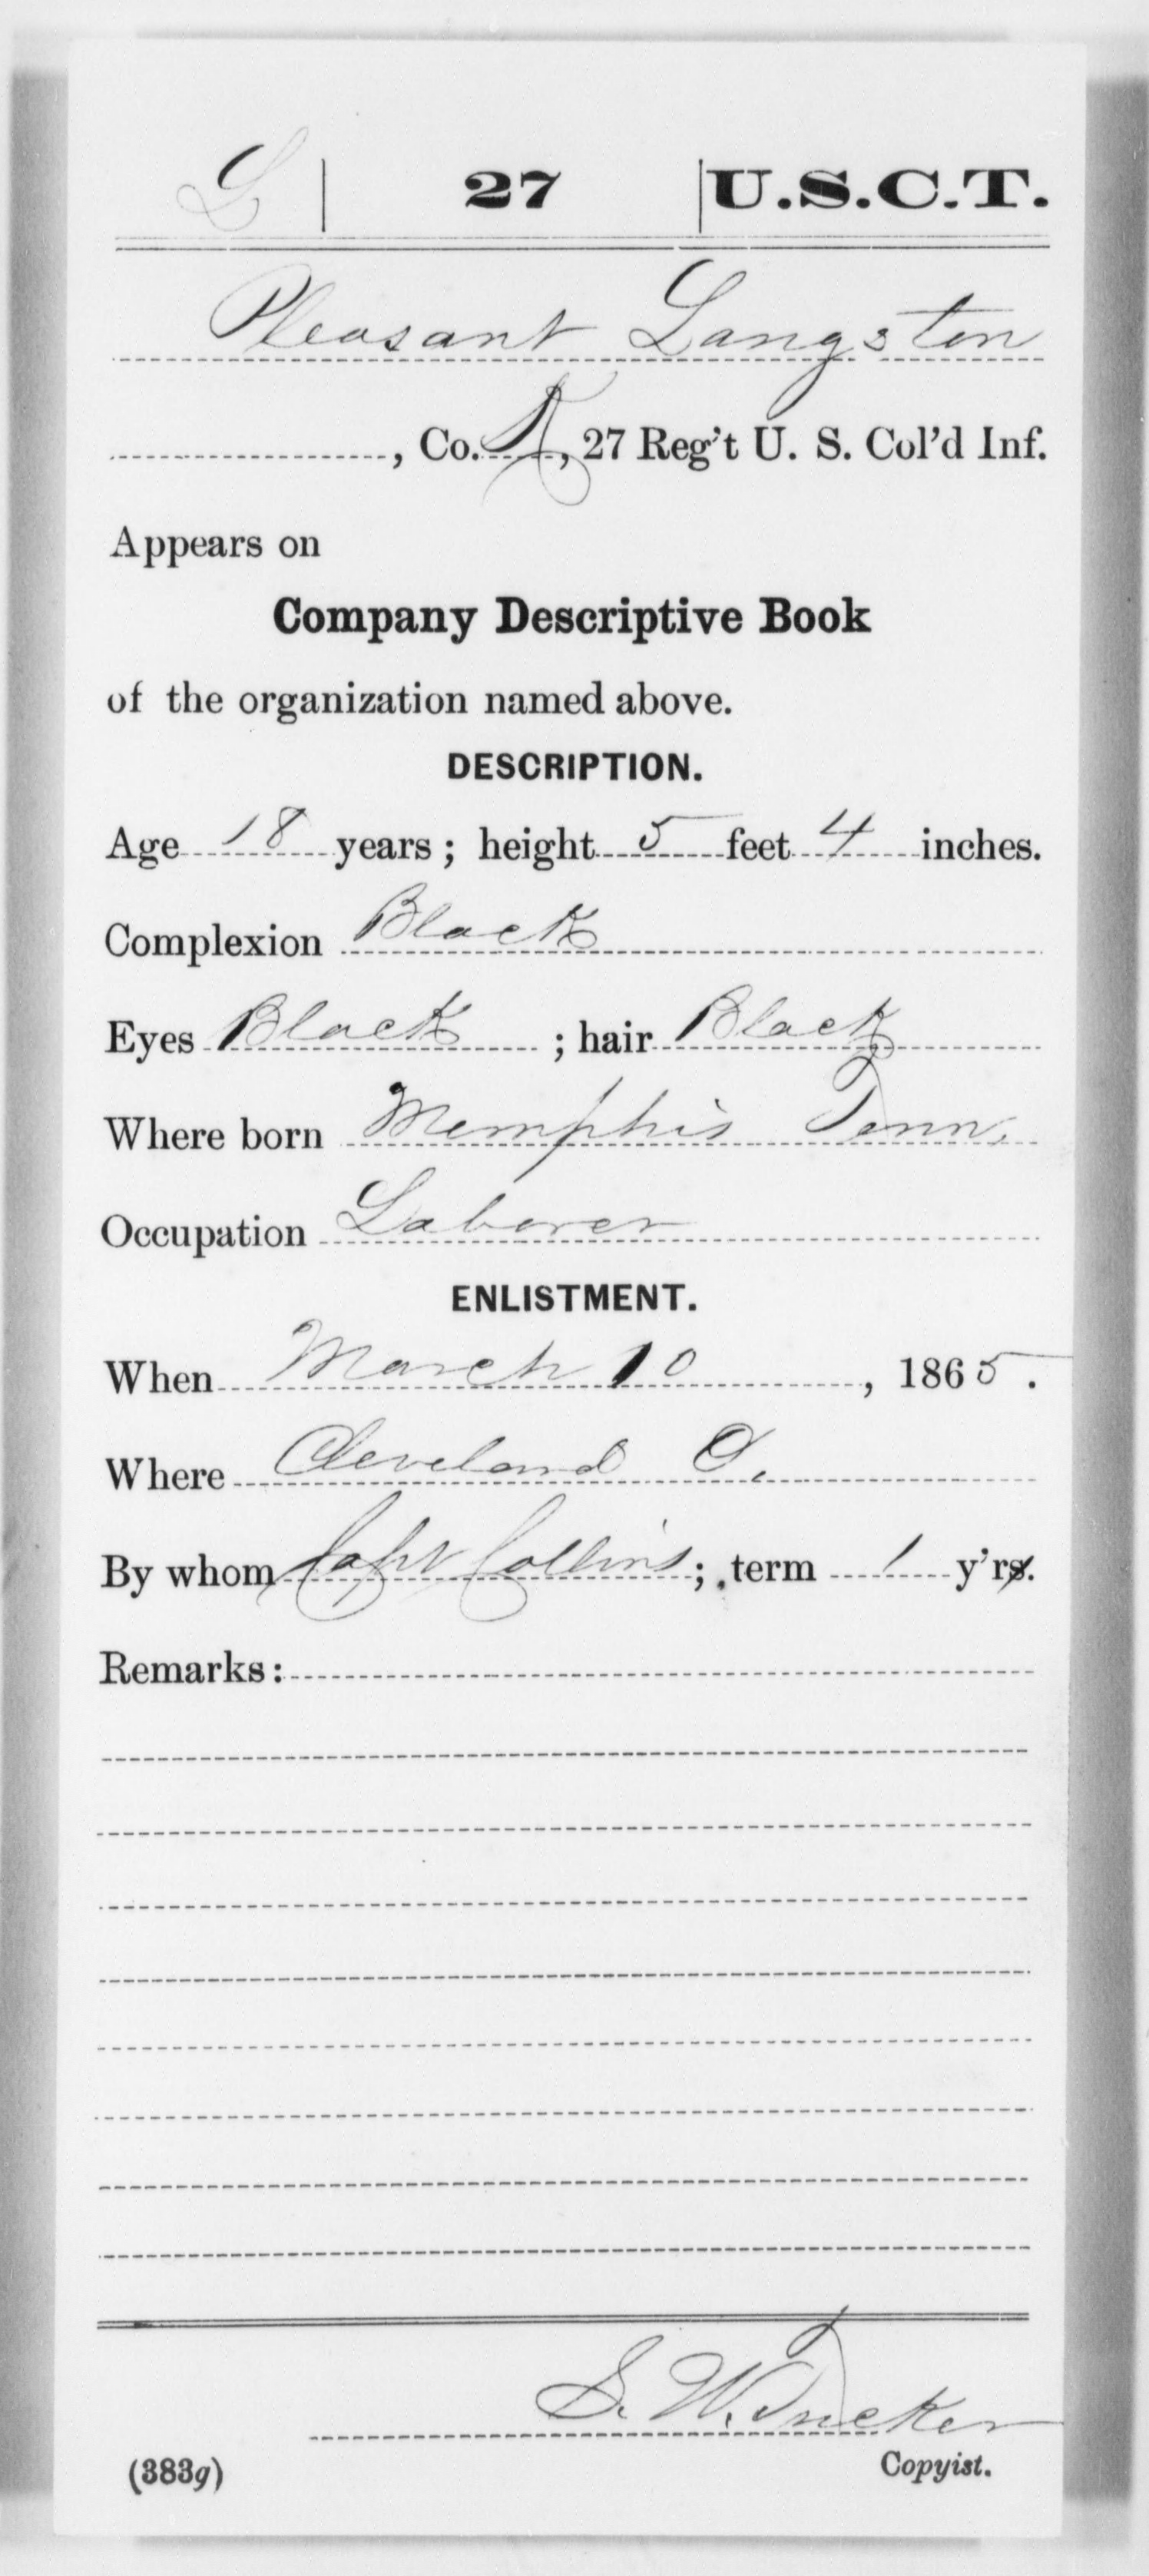 L | 27 | U.S.C.T.
Pleasant Langston
, Co. K, 27 Reg't U. S. Col'd Inf.
Appears on
Company Descriptive Book
of the organization named above.
DESCRIPTION.
Age 18 years; height 5 feet 4 inches.
Complexion Black
Eyes Black; hair Black
Where born Memphis Tenn,
Occupation Laborer
ENLISTMENT.
When March 10, 1865.
Where Cleveland O.
By whom Capt Collins; term 1 y'rs.
Remarks:
S. W. Tucker
(383g) Copyist.